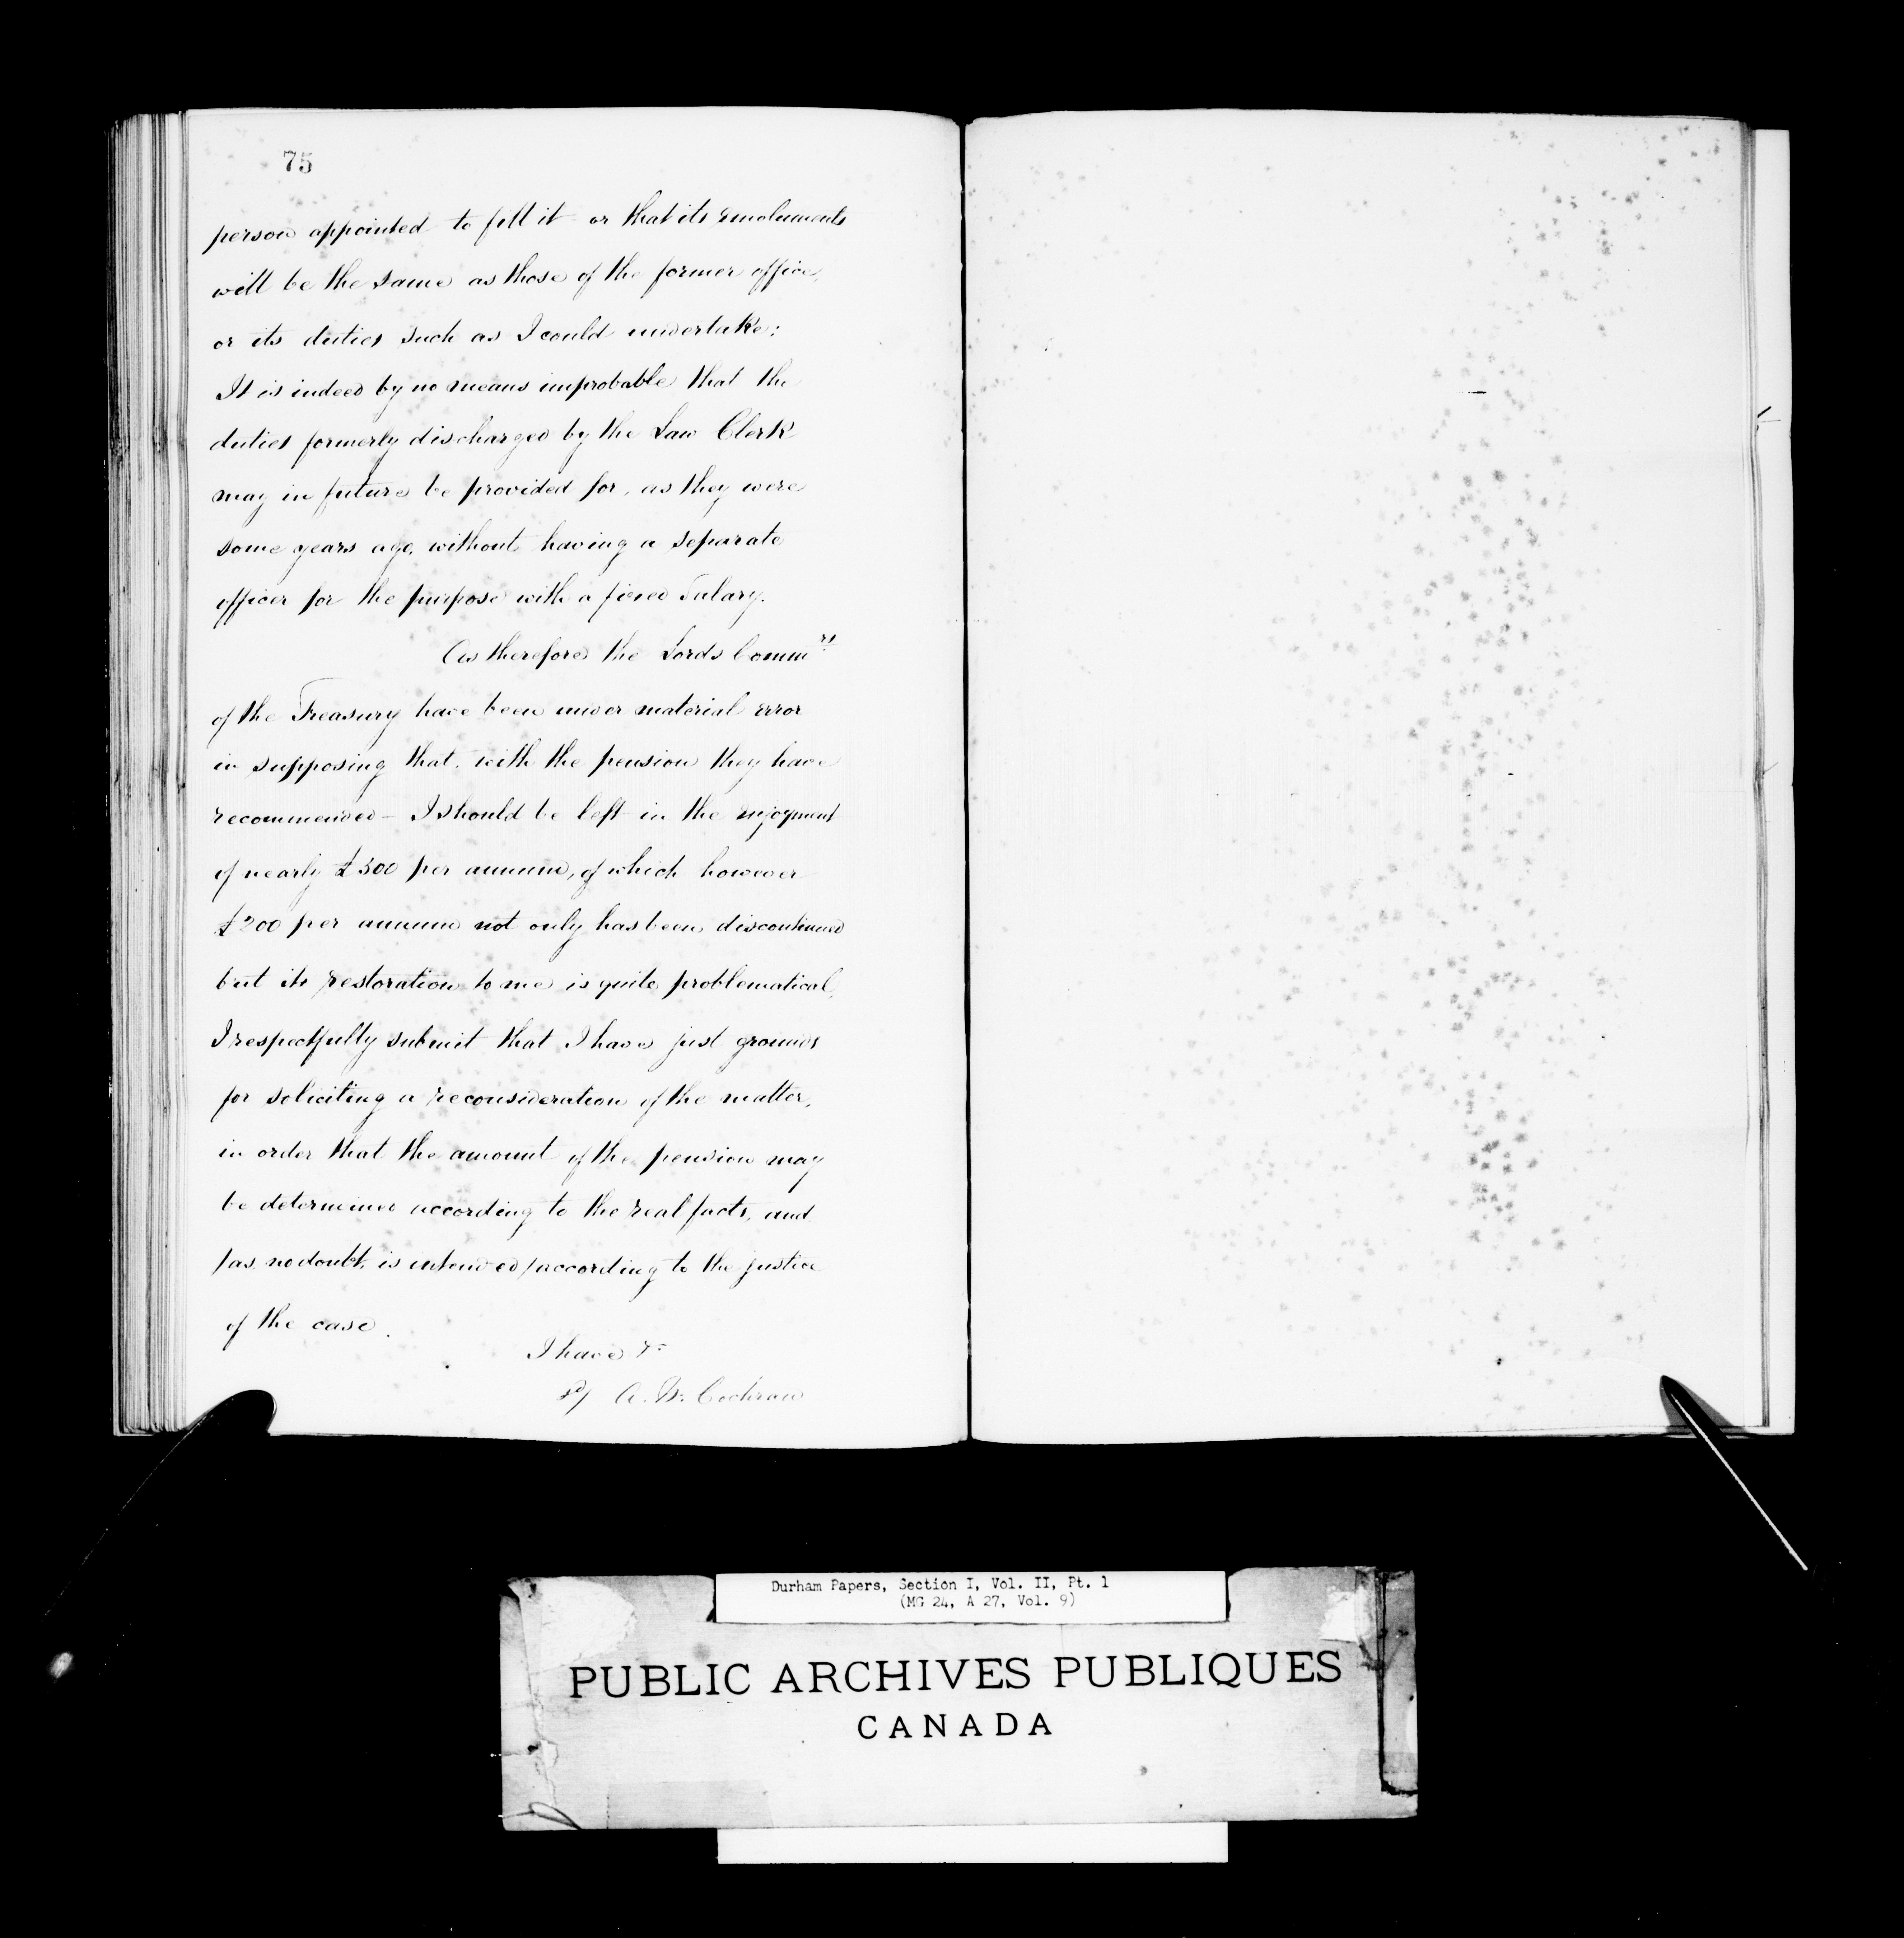 75
person appointed to fill it or that its emoluments
will be the same as those of the former office,
or its duties such as I could undertake;
It is indeed by no means improbable that the
duties formerly discharged by the Law Clerk
may in future be provided for, as they were
some years ago, without having a separate
officer for the purpose with a fixed Salary.
As therefore the Lords Commrs
of the Treasury have been under material error
in supposing that, with the pension they have
recommended - I should be left in the enjoyment
of nearly £500 per annum, of which however
£200 per annum not only has been discontinued
but its restoration to me is quite problematical,
I respectfully submit that I have just grounds
for soliciting a reconsideration of the matter,
in order that the amount of the pension may
be determined according to the real facts, and
/as, no doubt, is intended/ according to the justice
of the case.
I have &c
sd/ A. W. Cochran
Durham Papers, Section I, Vol. II, Pt. 1
(MG 24, A 27, Vol. 9)
PUBLIC ARCHIVES PUBLIQUES
CANADA